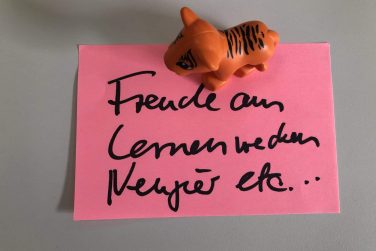 Freude am
Lernen wecken
Neugier etc...